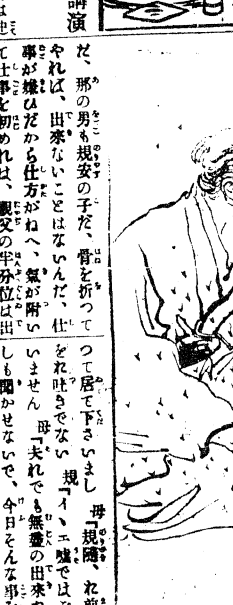 講演
だ、那の男も規安の子だ、骨を折つて
やれば、出來ないことはないんだ、仕
事が嫌ひだから仕方がねへ、氣が附い
て仕事を初めれば、親父の半分位は出
つて居て下さいまし 母『規隨、れ前
をれ吐きでない 規『イヽエ嘘では
いません 母『夫れでも無盡の出來
しも聞かせないで、今日そんな事